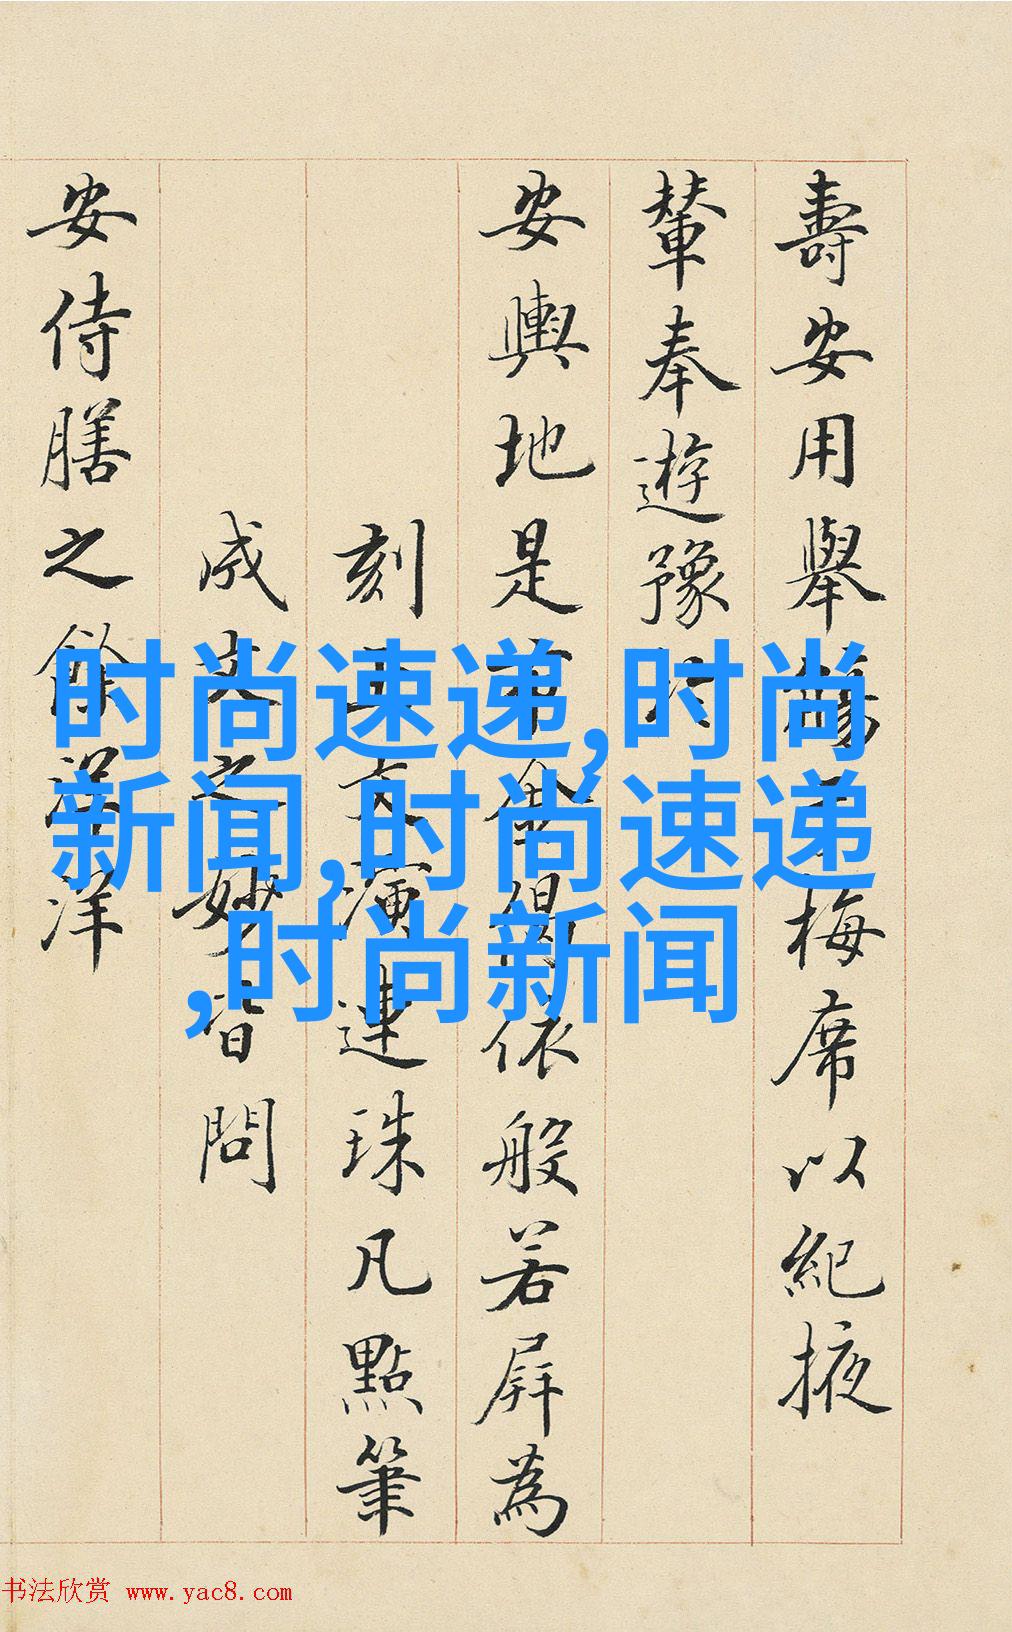 壽安用舉梅席以紀掖
輦奉遊豫
安輿地是依般若屏為
刻文連珠凡點筆
成之妙皆問
安侍膳之餘洋
时尚速递,时尚
新闻,时尚速递
,时尚新闻
书法欣赏 www.yac8.com